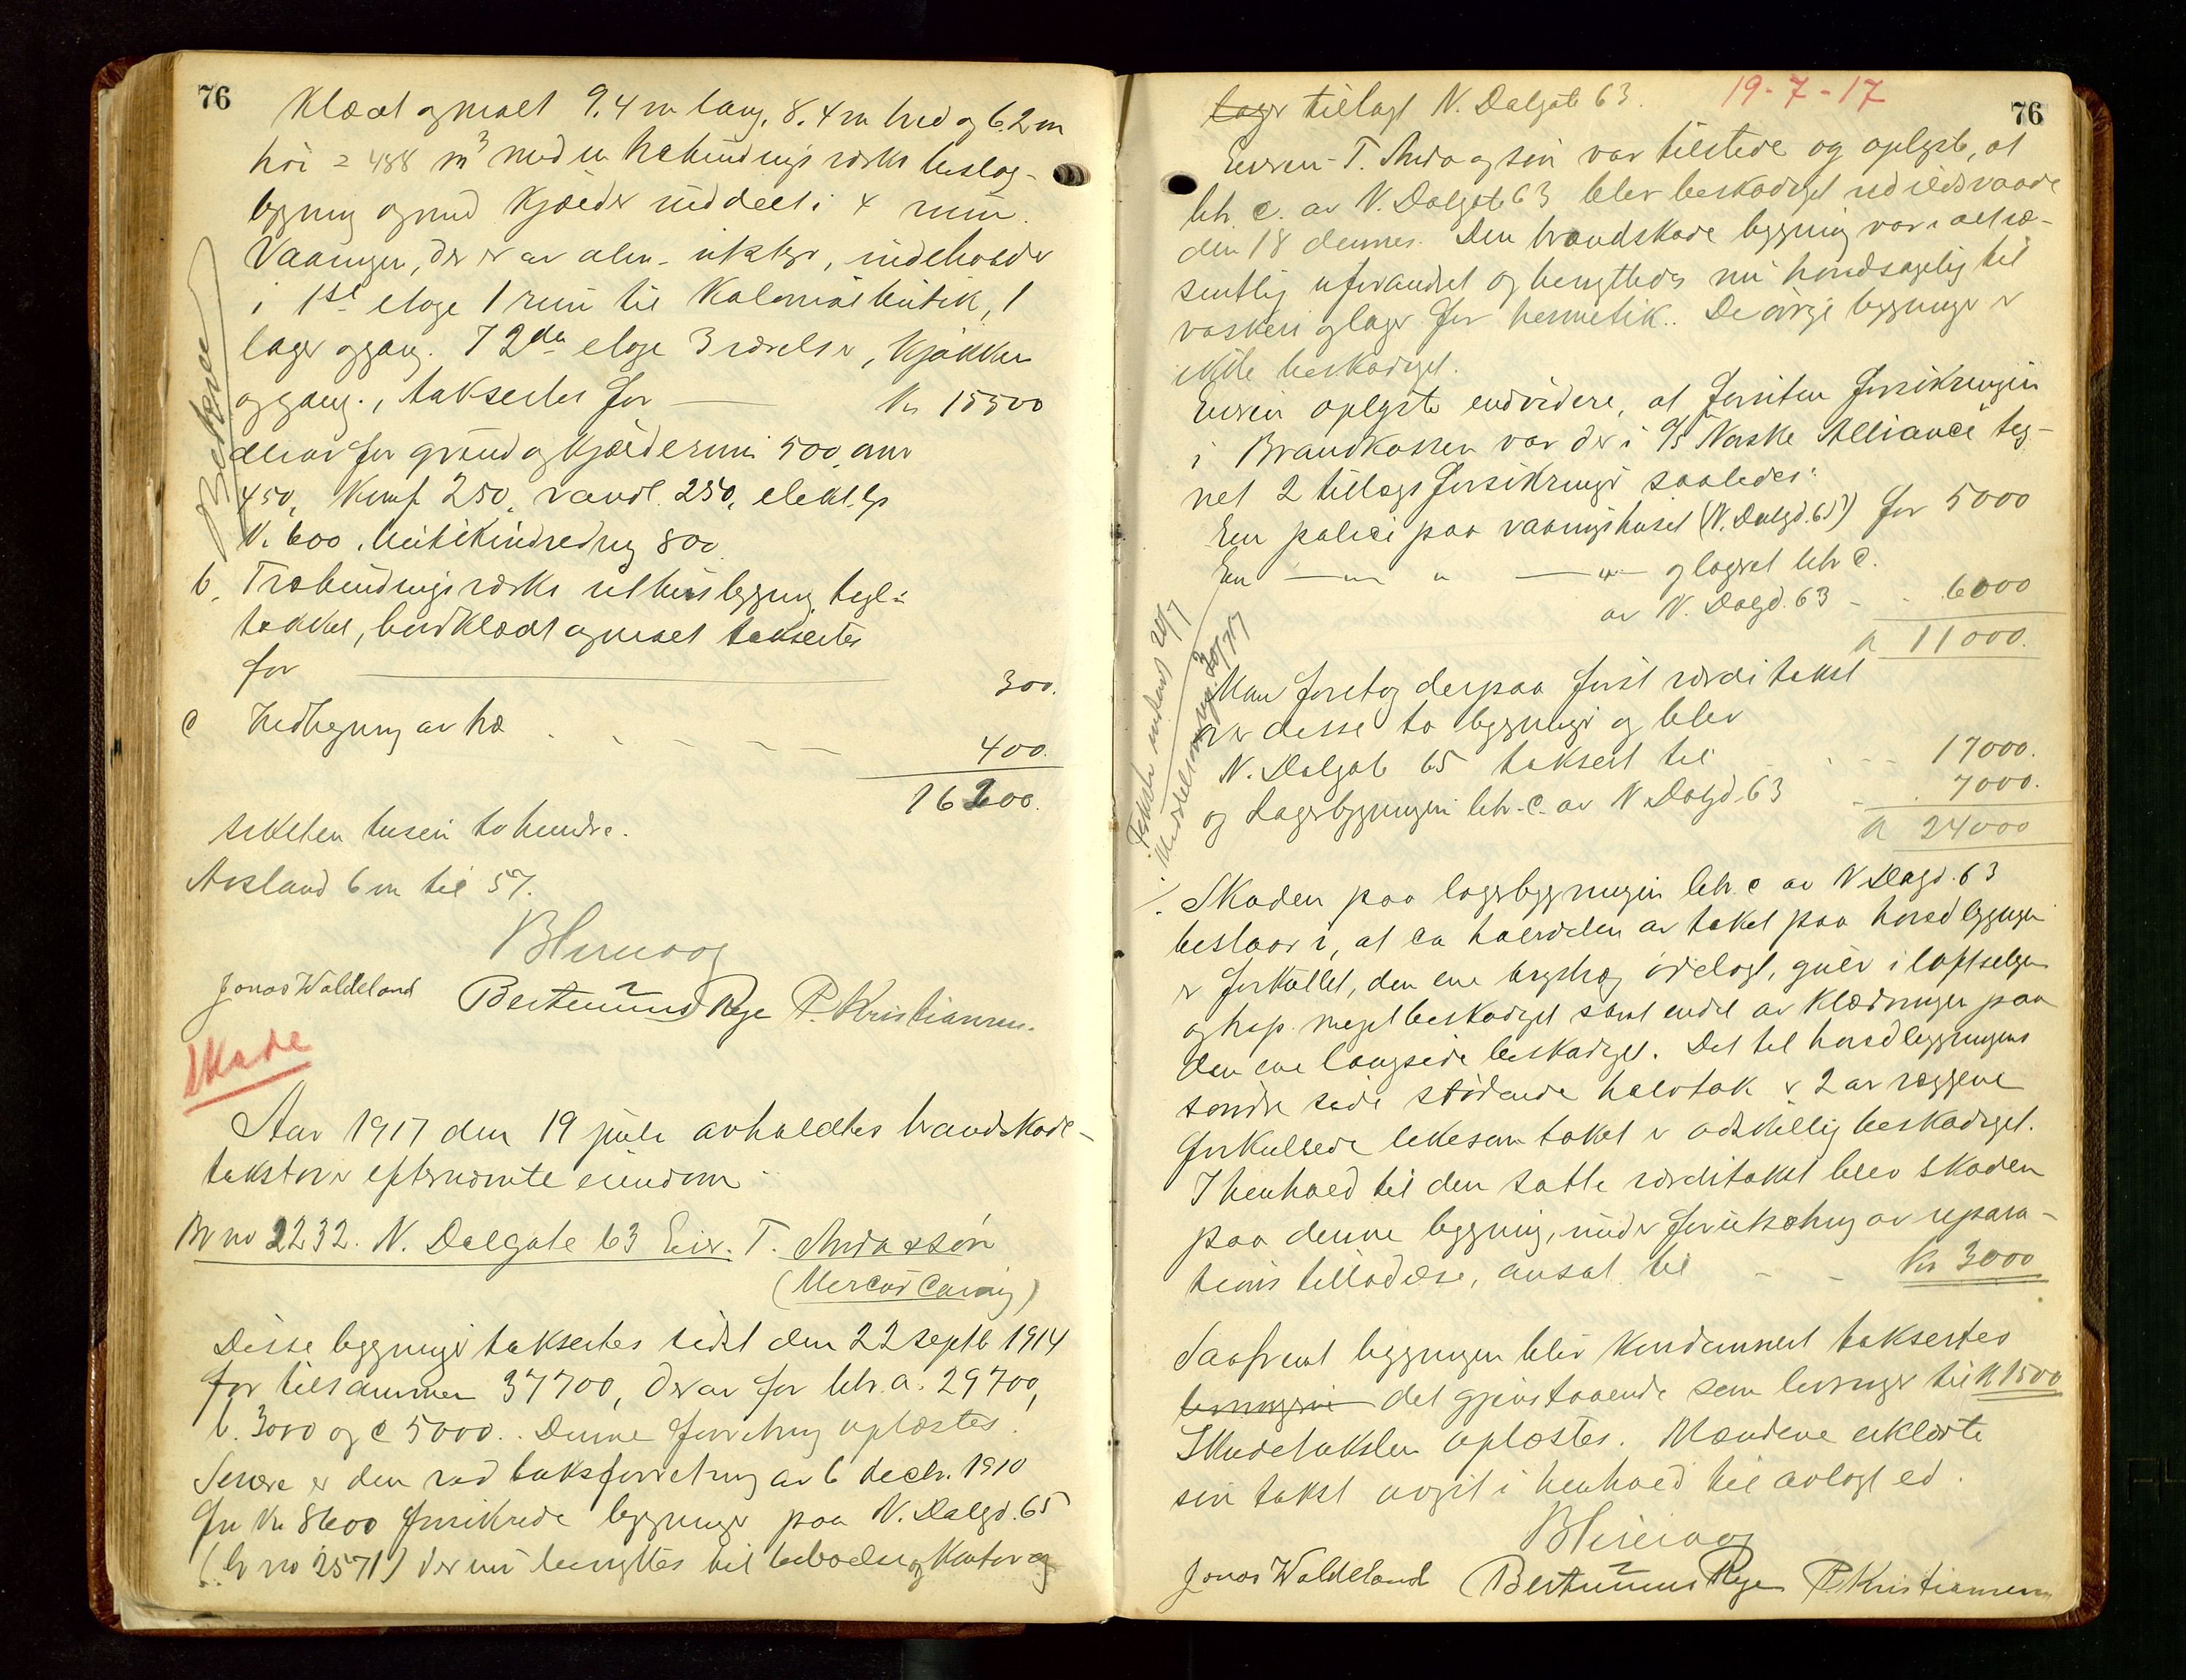 76
Klædt og malt 9.4 m lang, 8.4 m bred og 6.2 m
høi = 488 m³ med en træbindingsværks beslag-
bygning og med kjælder inddelt i 4 rum.
Vaaningen, der er av alm. utstyr, indeholder
i 1ste etage 1 rum til Kolonialbutik, 1
lager og gang. I 2den etage 3 værelser, kjøkken
og gang, takseres for Kr 15500
derav for grund og kjælderrum 500, mur
450, Komf. 250, vandl. 250, elekt. lys
Kr. 600, butikindredning 800
b. Træbindingsværks uthusbygning, tegl-
tækket, bordklædt og malt takseres
for 300.
c Indhegning av træ 400.
16200.
seksten tusen to hundre.
Avstand 6 m til 57.
Jonas Waldeland Bertinius Rege P. Kristiansen.
Skade
Aar 1917 den 19 juli avholdtes brandskade-
takst over efternævnte eiendom
Br no 2232. N. Dalgate 63 Eier. T. Anda & søn
(Mercur Caning)
Disse bygninger taksertes sidst den 22 septb 1914
for tilsammen 37700, derav for litr. a. 29700,
b. 3000 og c 5000. Denne forretning oplæstes.
Senere er den ved taksforretning av 6 decbr. 1910
for Kr 8600 forsikrede bygninger paa N. Dalgd. 65
(br no 2571) der nu benyttes til beboelse og kontor og
76
19-7-17
lager tillagt N. Dalgate 63.
Eieren T. Anda og søn var tilstede og oplyste, at
litr. c. av N. Dalgate 63 blev beskadiget ved ildsvaade
den 18 dennes. Den brandskade bygning var i alt væ-
sentlig uforandret og benyttedes nu hovedsagelig til
vaskeri og lager for hermetik. De øvrige bygninger er
ikke beskadiget.
Eieren oplyste endvidere, at foruten forsikringen
i Brandkassen var der i A/S Norske Alliance teg-
net 2 tillægsforsikringer saaledes:
En polici paa vaaningshuset (N. Dalgd. 65) for 5000
En — " — " — " — og lagret litr c.
av N. Dalgd. 63 - - 6000
Kr 11000.
Man foretog derpaa først værditakst
over disse to bygninger og blev
N. Dalgate 65 taksert til - - - 17000.
og Lagerbygningen litr. c. av N Dalgd. 63 - - 7000.
Kr 24000
Skaden paa lagerbygningen litr. c av N Dalgd. 63
bestaar i, at ca halvdelen av taket paa hovedbygningen
er forkullet, den ene brystvæg ødelagt, gulv i loftsetagen
og trap. meget beskadiget samt endel av klædningen paa
den ene langside beskadiget. Det til hovedbygningens
søndre side stødende halvtak er 2 av væggene
forkullede likesom taket er adskillig beskadiget.
I henhold til den satte værditakst blev skaden
paa denne bygning, under forutsætning av repara-
tions tilladelse, ansat til - - Kr 3000
Saafremt bygningen blir kondemnert taksertes
det gjenstaaende som levninger til Kr 1500
Skadetaksten oplæstes. Mændene erklærte
sin takst avgit i henhold til avlagt ed.
Jonas Waldeland Bertinius Rege P. Kristiansen